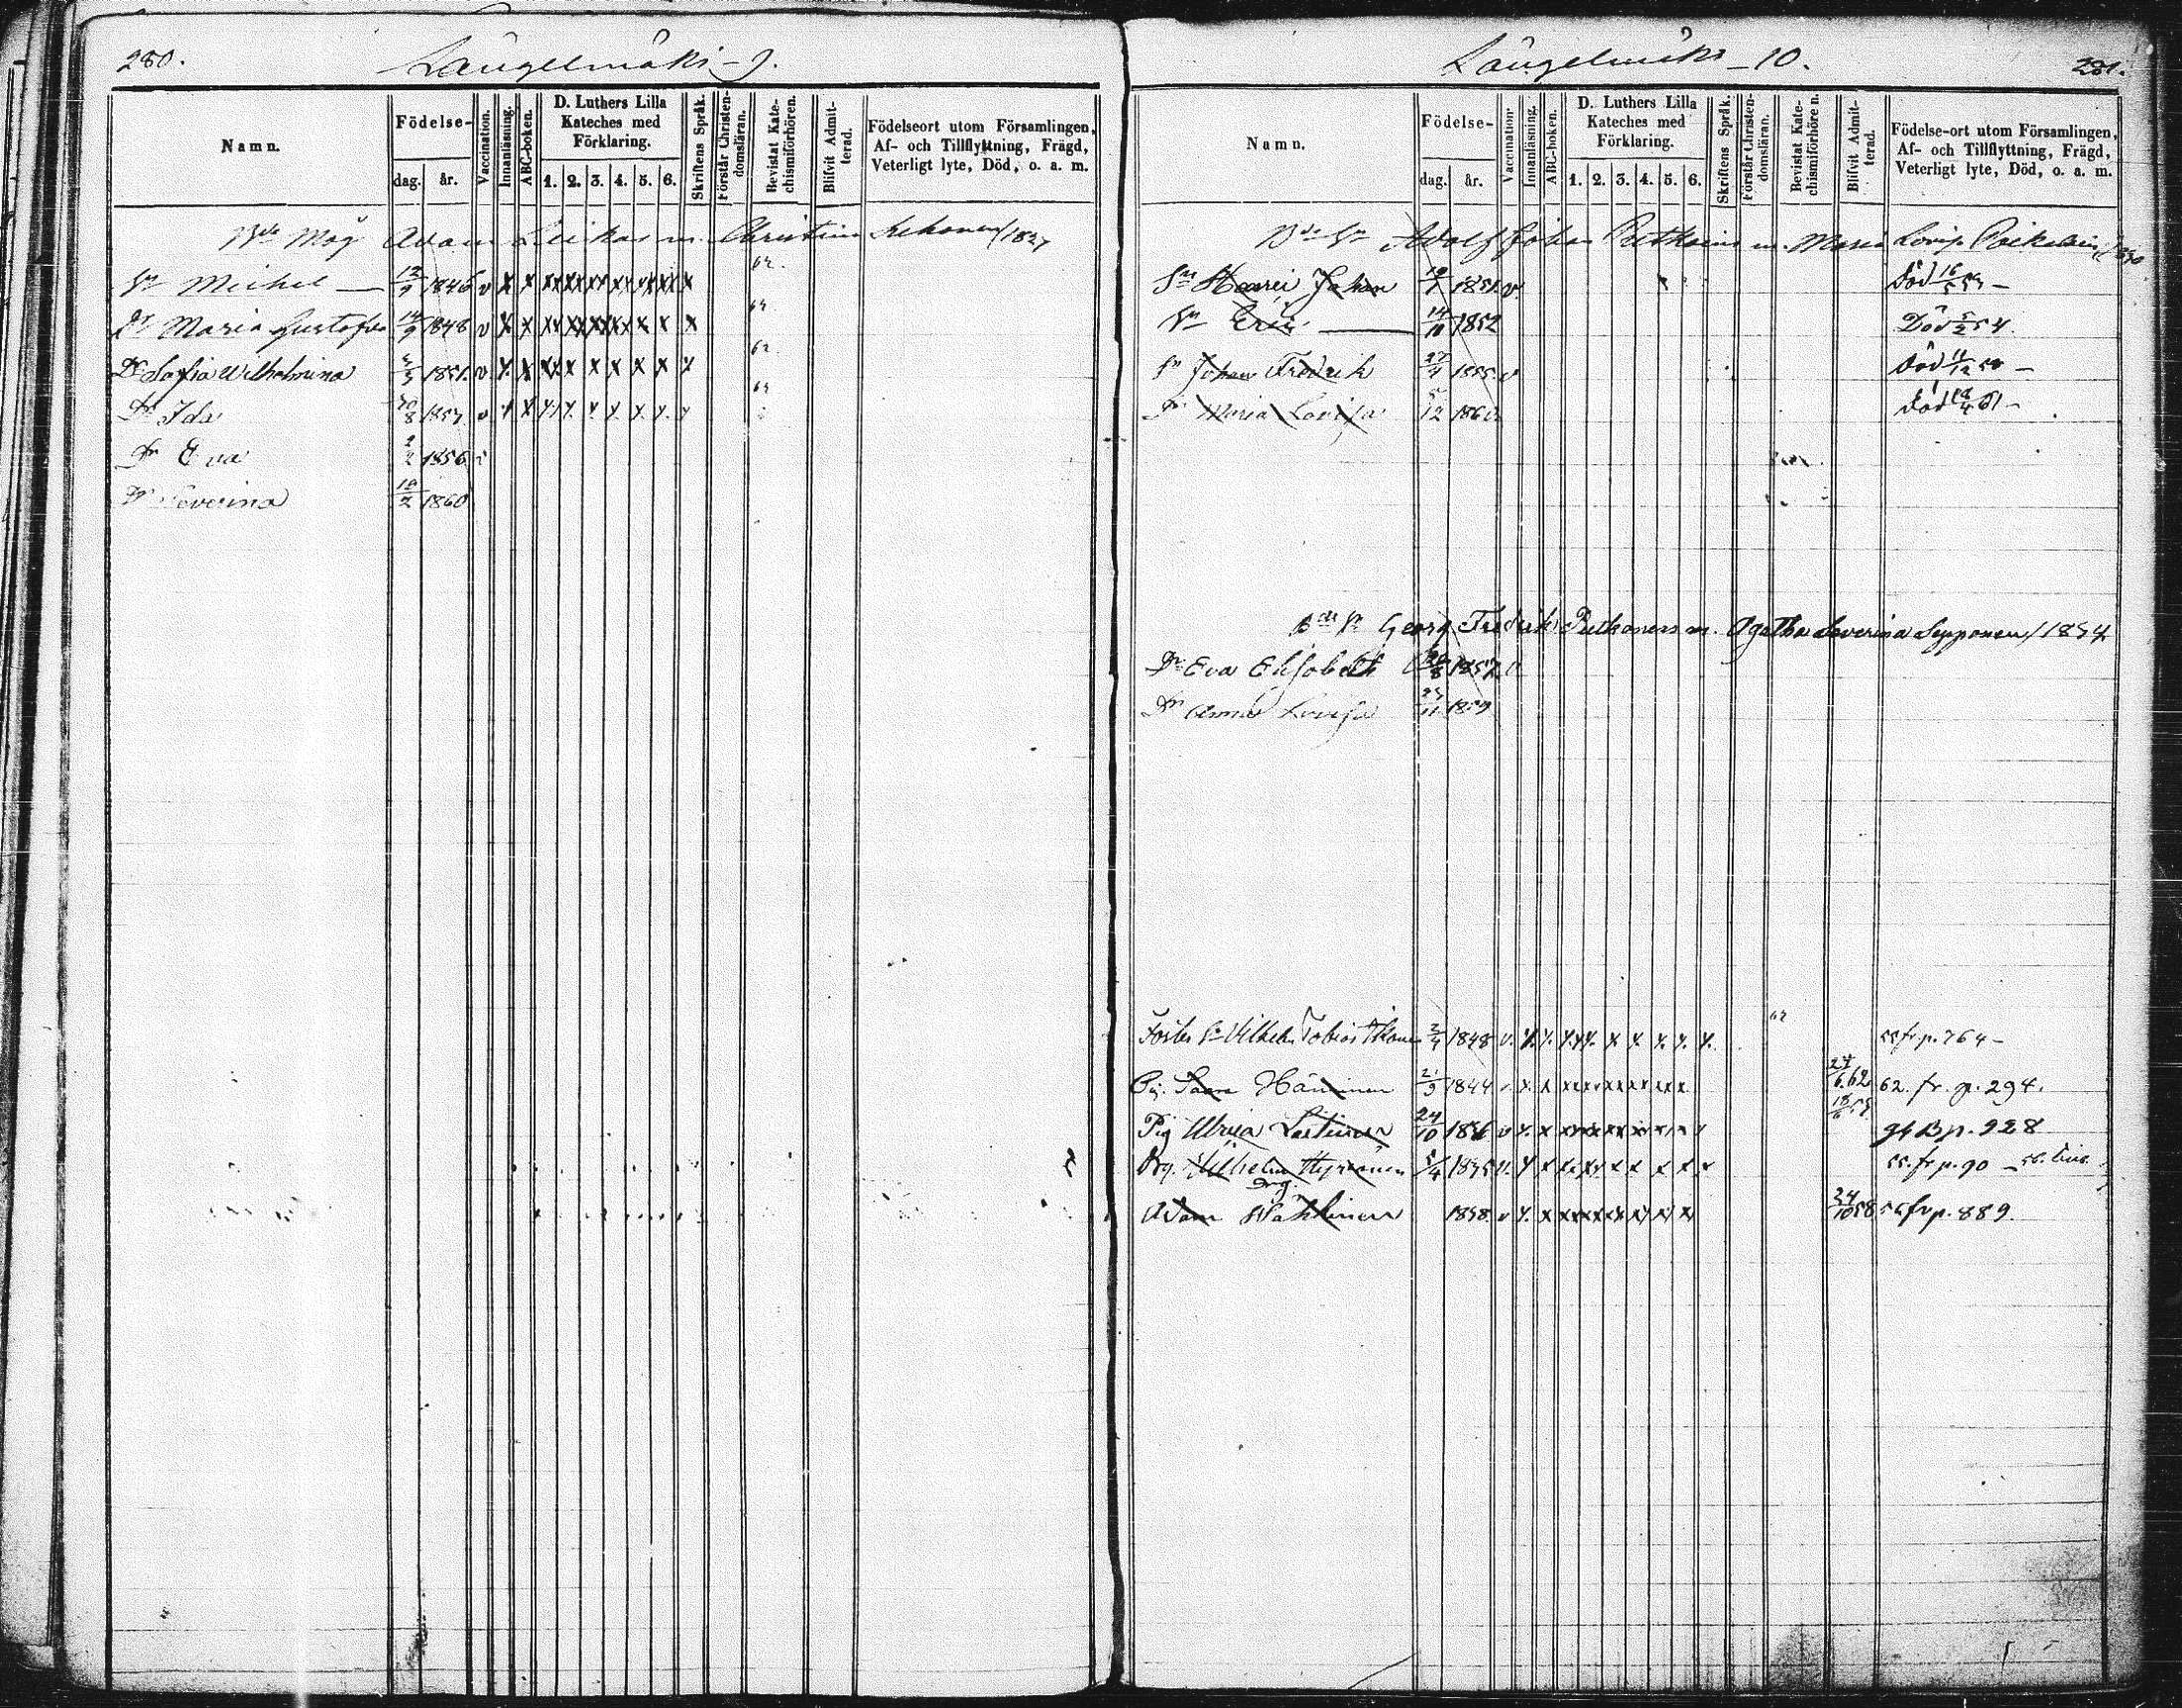 280.
Längelmäki - 9.
Namn.
Födelse-
dag. år.
Vaccination.
Innanläsning.
ABC-boken.
D. Luthers Lilla
Kateches med
Förklaring.
1. 2. 3. 4. 5. 6.
Skriftens Språk.
Förstår Christen-
domsläran.
Bevistat Kate-
chismiförhören.
Blifvit Admit-
terad.
Födelseort utom Församlingen,
Af- och Tillflyttning, Frägd,
Veterligt lyte, Död, o. a. m.
Bde Måg Adam Leikas m. Christina /1827
Sn Michel 12/9 1846 v x x
Dr Maria Gustafva 14/9 1848 v x x
Dr Sofia Wilhelmina 1851. v x x
Dr Ida 1854. v x x
Dr Eva 2/2 1856
Dr Severina 18/2 1860
Längelmäki - 10.
281.
Namn.
Födelse-
dag. år.
Vaccination.
Innanläsning.
ABC-boken.
D. Luthers Lilla
Kateches med
Förklaring.
1. 2. 3. 4. 5. 6.
Skriftens Språk.
Förstår Christen-
domsläran.
Bevistat Kate-
chismiförhören.
Blifvit Admit-
terad.
Födelse-ort utom Församlingen,
Af- och Tillflyttning, Frägd,
Veterligt lyte, Död, o. a. m.
Bde Sn Adolf Johan m. Maria Lovisa
Sn Johan 1851 v. Död 16/5 53 -
Sn Eric 14/10 1852 Död 5/2 54.
Sn Johan Fredrik 27/4 1855 v Död 11/12 58 -
Dr Maria Lovisa 5/12 1860 Död 18/4 61 -
Bde Sn Georg Fredrik Putkonen m. Agatha Severina Sepponen /1834
Dr Eva Elisabeth 1857
Dr Anna Lovisa 25/11 1859
Foster Sn Vilhelm Tobias 2/4 1848 v. x. x. 62 55 fr p. 764 -
Pig. Hänninen 21/9 1844 x. x 24/6 62 62. fr. p. 294.
Pig Ulrica 24/10 1836 v x. x 18/6 53 p. 928
Drg. Vilhelm Hyvönen 5/4 1835 v. x x 55. fr p. 90 -
Drg.
Adam 1838. v x. x 24/10 58 56 fr p. 889.